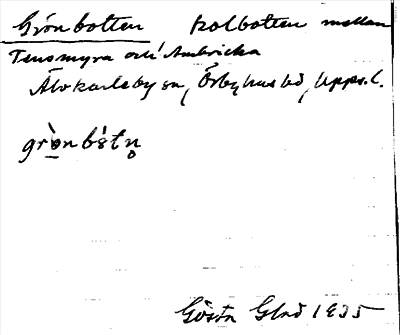 Grönbotten kolbotten mellan
Tensmyra och Ambricka
Älvkarleby sn, Örbyhus hd, Upps.l.
grònbòtn̥
Gösta Glad 1935